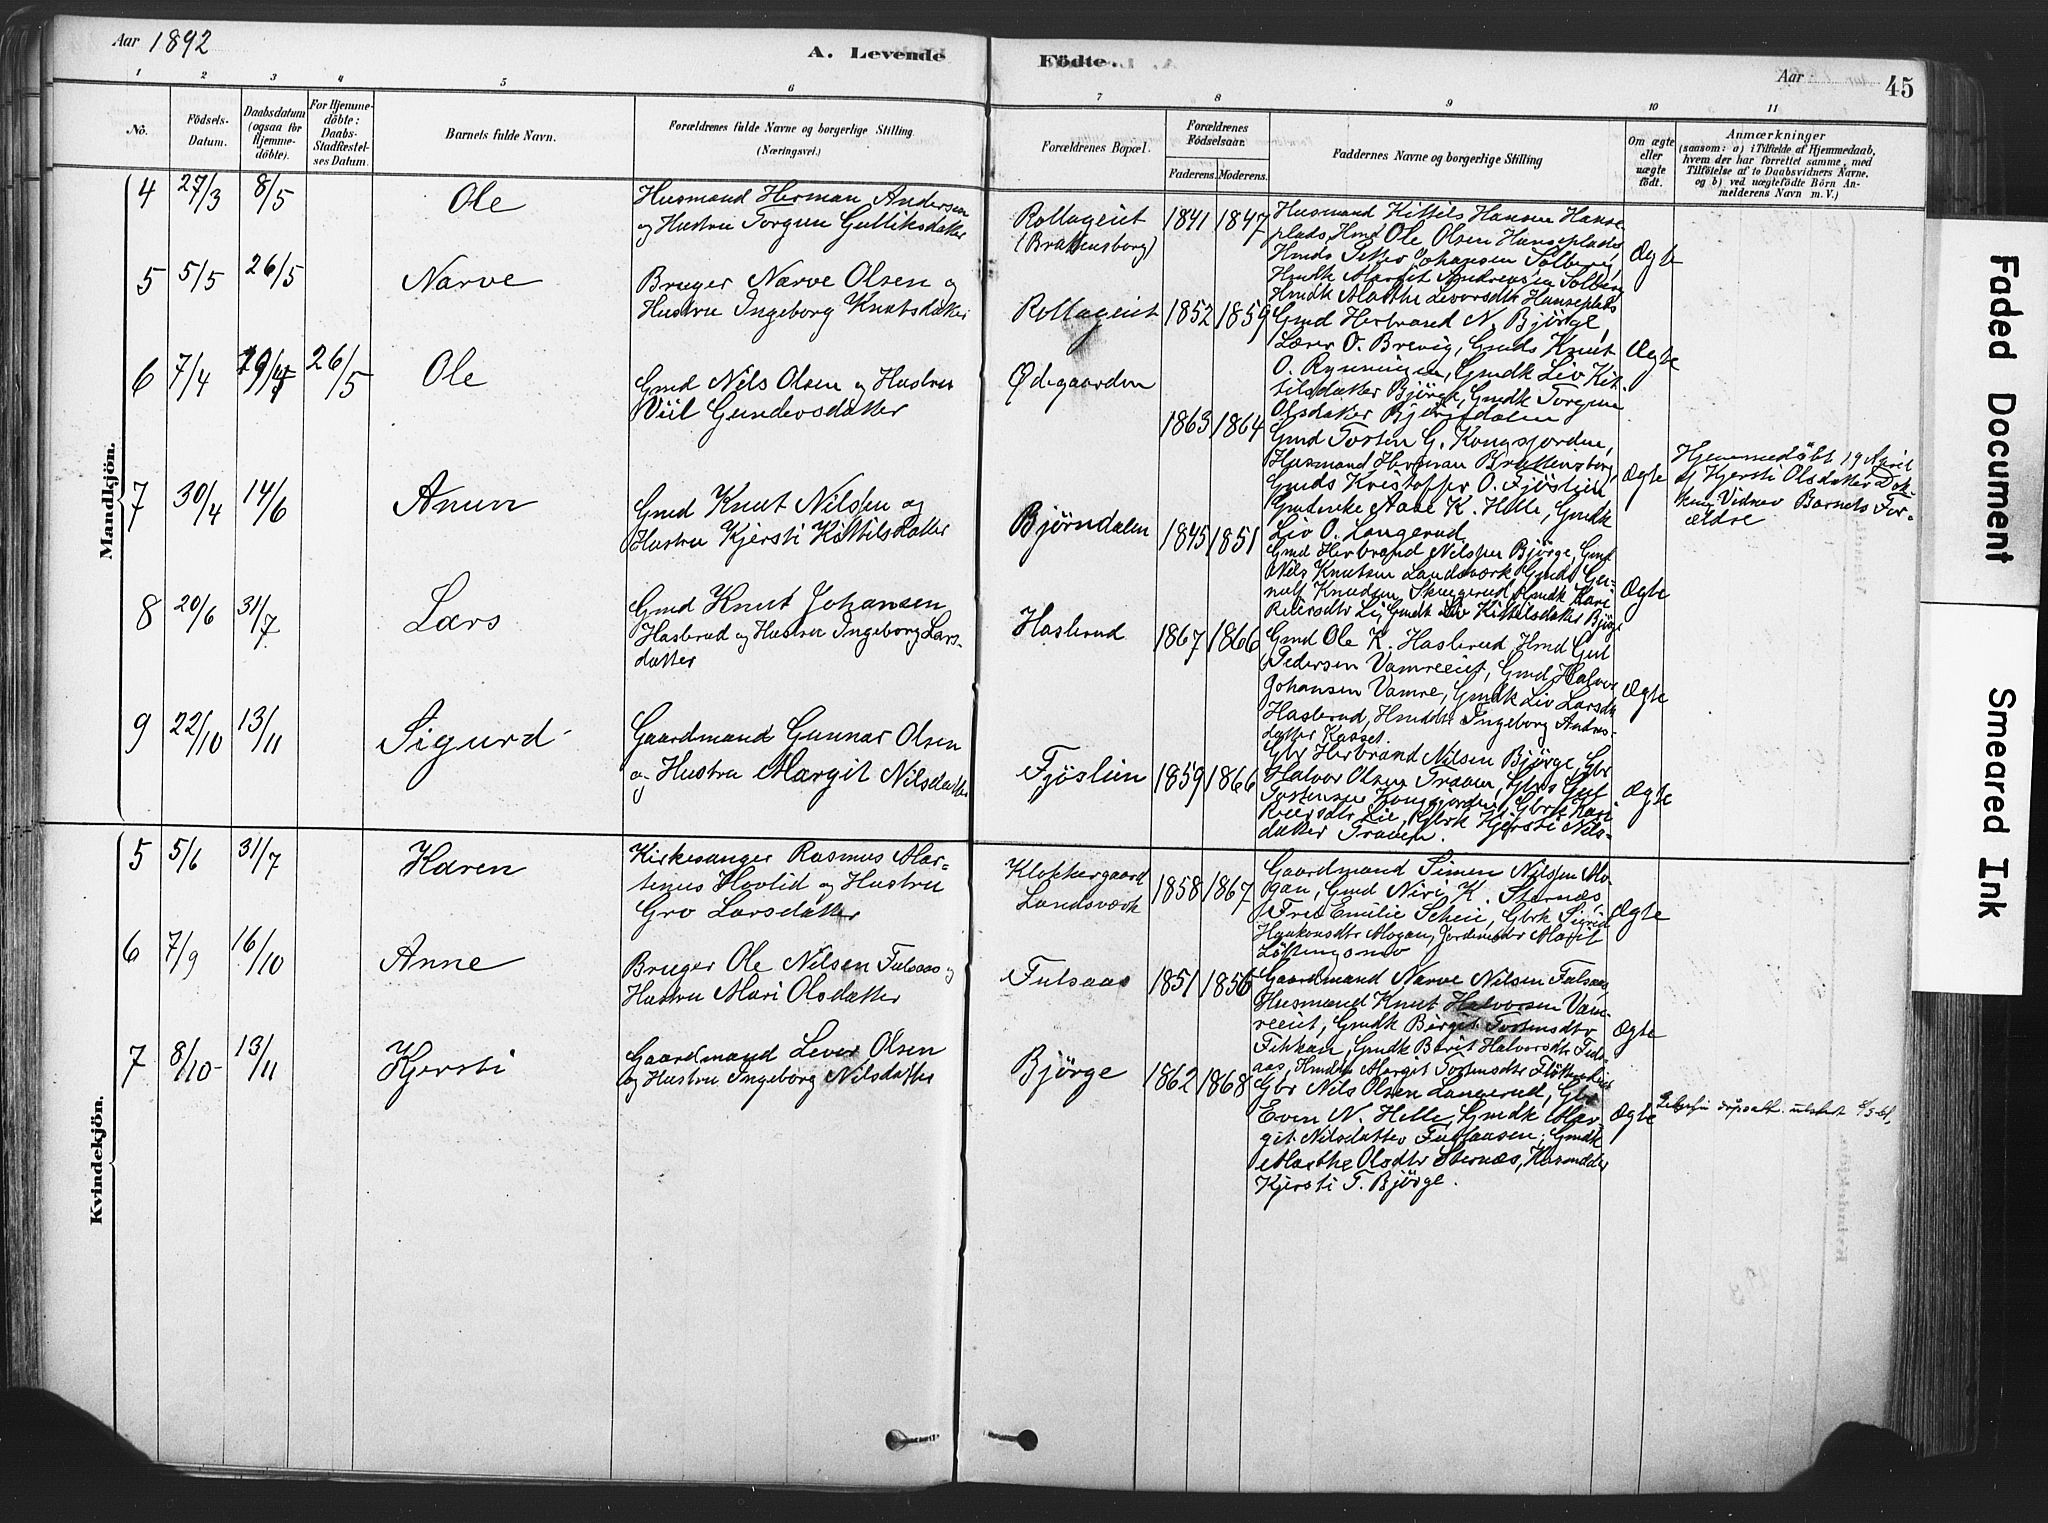 Aar 1892
A. Levende Födte.
Aar
45
1 2 3 4 5 6 7 8 9 10 11
No.
Födsels-
Datum.
Daabsdatum
(ogsaa for
Hjemme-
döbte).
For Hjemme-
döbte:
Daabs-
Stadfæstel-
ses Datum.
Barnets fulde Navn.
Forældrenes fulde Navne og borgerlige Stilling.
(Næringsvei.)
Forældrenes Bopæl.
Forældrenes
Födselsaar.
Faderens. Moderens.
Faddernes Navne og borgerlige Stilling
Om ægte
eller
uægte
födt.
Anmærkninger
(saasom: a) i Tilfælde af Hjemmedaab,
hvem der har forrettet samme, med
Tilföielse af to Daabsvidners Navne.
og b) ved uægtefödte Börn An-
melderens Navn m. V.)
Mandkjön.
4 27/3 8/5 Ole
Husmand Herman Andersen
og Hustru Torgun Gulliksdatter
Rollageiet
(Brattensborg)
1841 1847
Husmand Kittils Hansen Hanse
plads, Hmd Ole Olsen Hanseplads
Hmds Peter Johansen Solberg,
Hmdk Margit Andreasen Solberg
Hmdk Marthe Leversdtr Hanseplads
Ægte
5 5/5 26/5 Narve
Bruger Narve Olsen og
Hustru Ingeborg Knutsdatter
Rollageiet
1852 1859
Gmd Herbrand N. Bjørge,
Lærer O. Brevig, Gmds Knut
O. Rynningen, Gmdk Liv Kit-
tilsdatter Bjørge, Gmdk Torgun
Olsdatter Bjørndalen
Ægte
6 7/4 19/4 26/5 Ole
Gmd Nils Olsen og Hustru
Viil Gundersdatter
Ødegaarden
1863 1864
Gmd Tosten G. Kongsjorden,
Husmand Herman Brattensborg,
Gmds Kristoffer O. Fjøslien
Aase K. Helle, Gmdk
Liv O. Langerud
Ægte
Hjemmedøbt 19 April
af Kjersti Olsdatter Dok-
ken, Vidner Barnets For-
ældre
7 30/4 14/6 Anun
Gmd Knut Nilsen og
Hustru Kjersti Kittilsdatter
Bjørndalen
1845 1851
Gmd Herbrand Nilsen Bjørge, Gmd
Nils Knutsen Landsværk, Gmds Gun-
nulf Knudsen Skugerud, Gmdk Kari
Reiersdtr Li, Gmdk Liv Kittilsdatter Bjørge
Ægte
8 20/6 31/7 Lars
Gmd Knut Johansen
Haslerud og Hustru Ingeborg Lars-
datter
Haslerud
1867 1866
Gmd Ole K. Haslerud, Hmd Gul
Pedersen Vamreeiet, Gmd Halvor
Johansen Vamre, Gmdk Liv Larsdtr
Haslerud, Hmddtr Ingeborg Anders-
datter Kasset.
Ægte
9 22/10 13/11 Sigurd
Gaardmand Gunnar Olsen
og Hustru Margit Nilsdatter
Fjøslien
1859 1866
Gbr Herbrand Nilsen Bjørge, Gbr
Halvor Olsen Traaen, Gbrs Gul
Tostensen Kongsjorden, Gbrk Kari
Reiersdtr Lie, Gbrk Kjersti Nils-
datter Traaen.
Ægte
Kvindekjön.
5 5/6 31/7 Karen
Kirkesanger Rasmus Mar-
tinus Hovlid og Hustru
Gro Larsdatter
Klokkergaard
Landsværk
1858 1867
Gaardmand Simen Nilsen Mo-
gan, Gmd Niri K. Sternæs,
Fru Emilie Scheie, Gbrk Sigrid
Haakonsdtr Mogan, Jordmoder Marit
Løttingsmo
Ægte
6 7/9 16/10 Anne
Bruger Ole Nilsen Fulsaas og
Hustru Mari Olsdatter
Fulsaas
1851 1856
Gaardmand Narve Nilsen Fulsaas,
Husmand Knut Halvorsen Vam-
reeiet, Gmdk Birgit Tostensdtr
Fikkan, Gmdk Berit Halvorsdtr Fuls-
aas, Hmdtr Margit Tostensdtr
Ægte
7 8/10 13/11 Kjersti
Gaardmand Lever Olsen
og Hustru Ingeborg Nilsdatter
Bjørge
1862 1868
Gbr Nils Olsen Langerud, Gbr
Even N. Helle, Gmdk Mar-
git Nilsdatter Fulsaasen, Gmdk
Marthe Olsdtr Sternæs,
Kjersti T. Bjørge.
Ægte
dåpsatt. utstedt
Faded Document
Smeared Ink